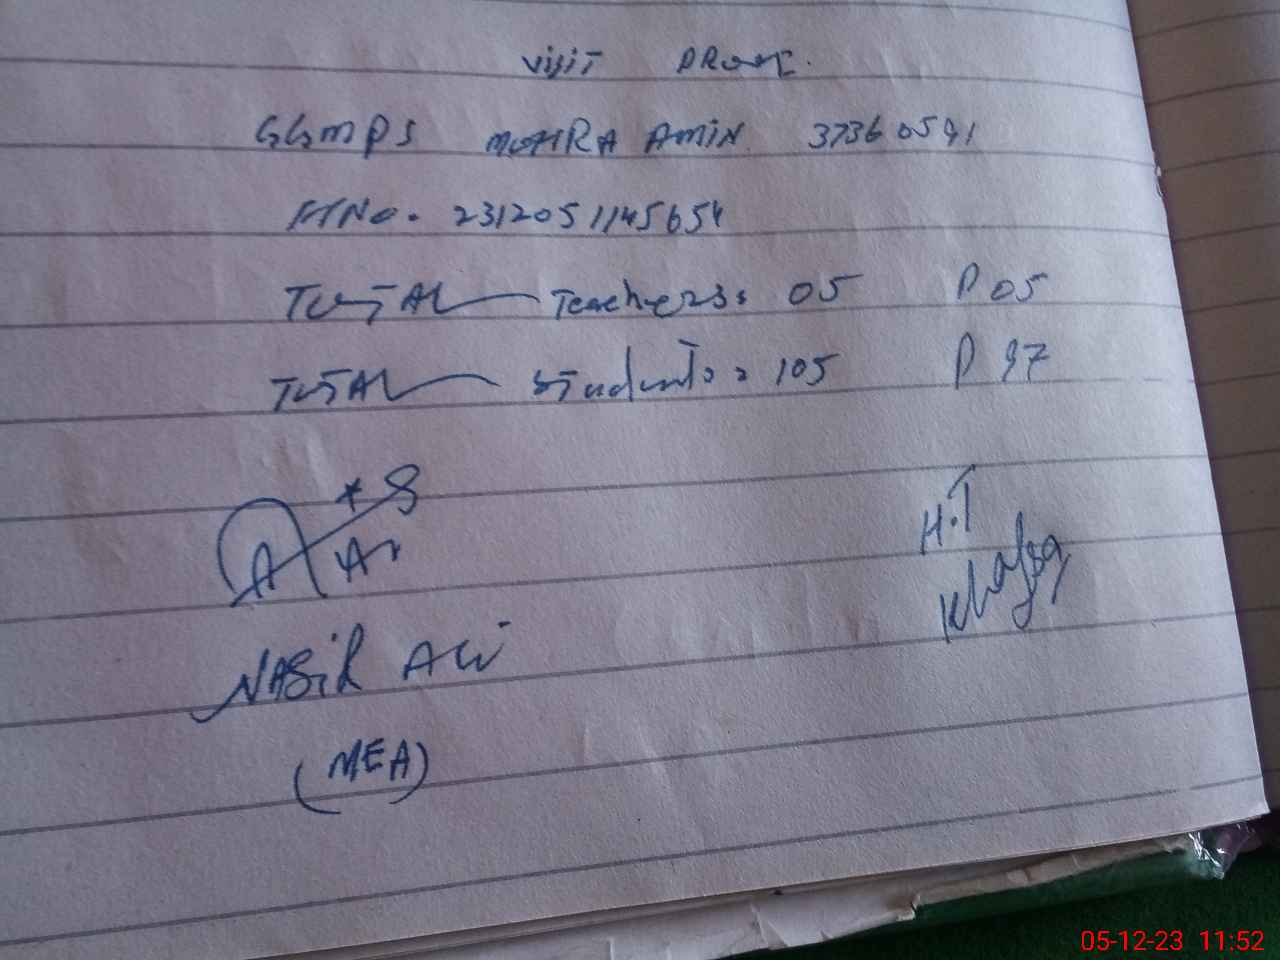 Visit PROOF.
GGMPS MOHRA AMIN 37360591
HNo. 2312051145654
TOTAL Teachers: 05 P 05
TOTAL Students: 105 P 97
H.T
NASiR ALi
(MEA)
05-12-23 11:52